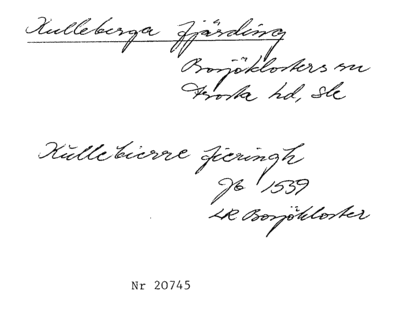 Kulleberga fjärding
Bosjöklosters sn
Frosta hd, Sk
Kullebierre fieringh
Jb 1539
LR Bosjökloster
Nr 20745